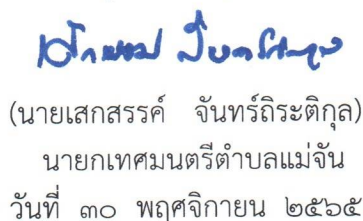 (นายเสกสรรค์ จันทร์ถิระติกุล)
นายกเทศมนตรีตำบลแม่จัน
วันที่ ๓๐ พฤศจิกายน ๒๕๖๕